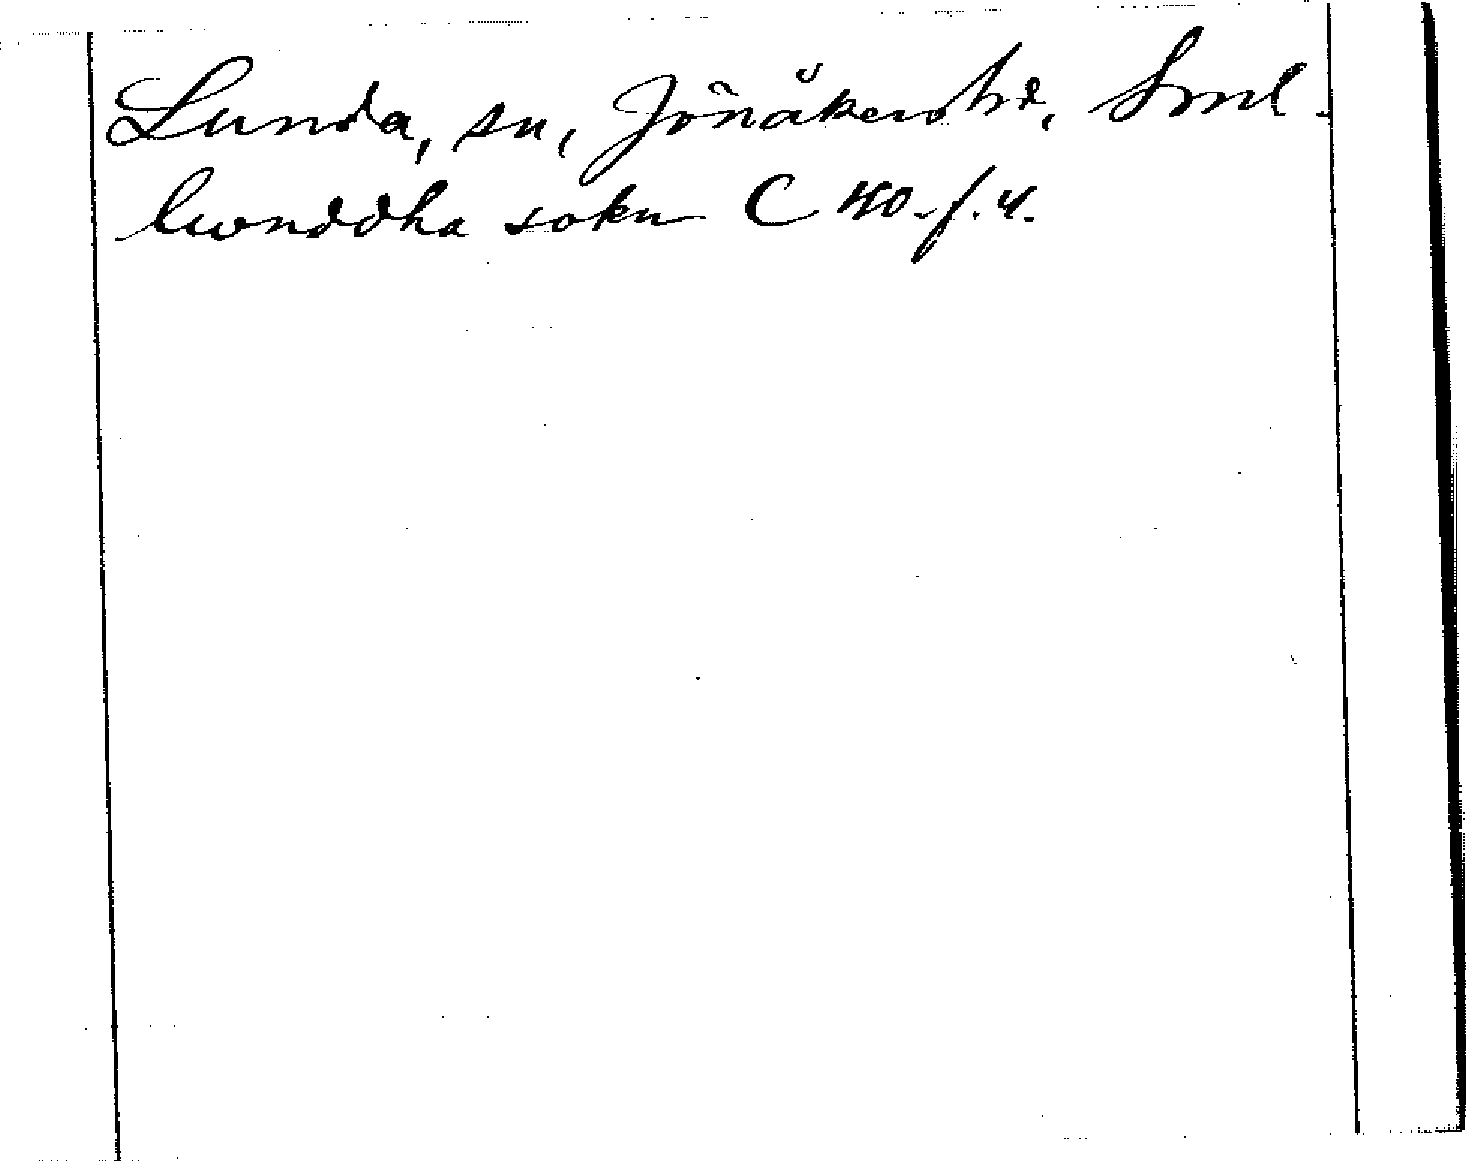 Lunda, sn, Jönåkers hd, Sml.
lwnddha sokn C 40. f. 4.